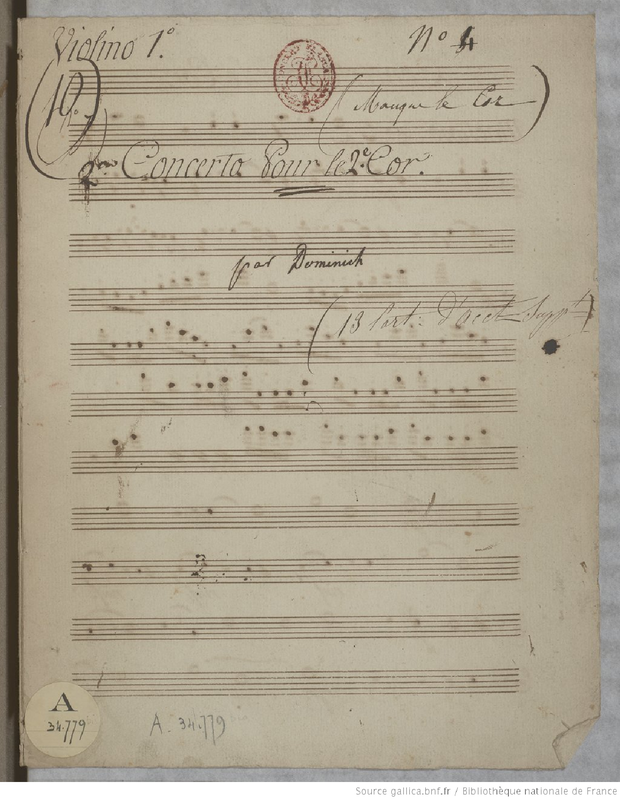 Violino 1.º
Nº 4
(Manque le Cor
Concerto Pour le 2.e Cor.
par Dominich
(13 Part. d'acct Suppt)
A
34.779
A. 34.779
Source gallica.bnf.fr / Bibliothèque nationale de France